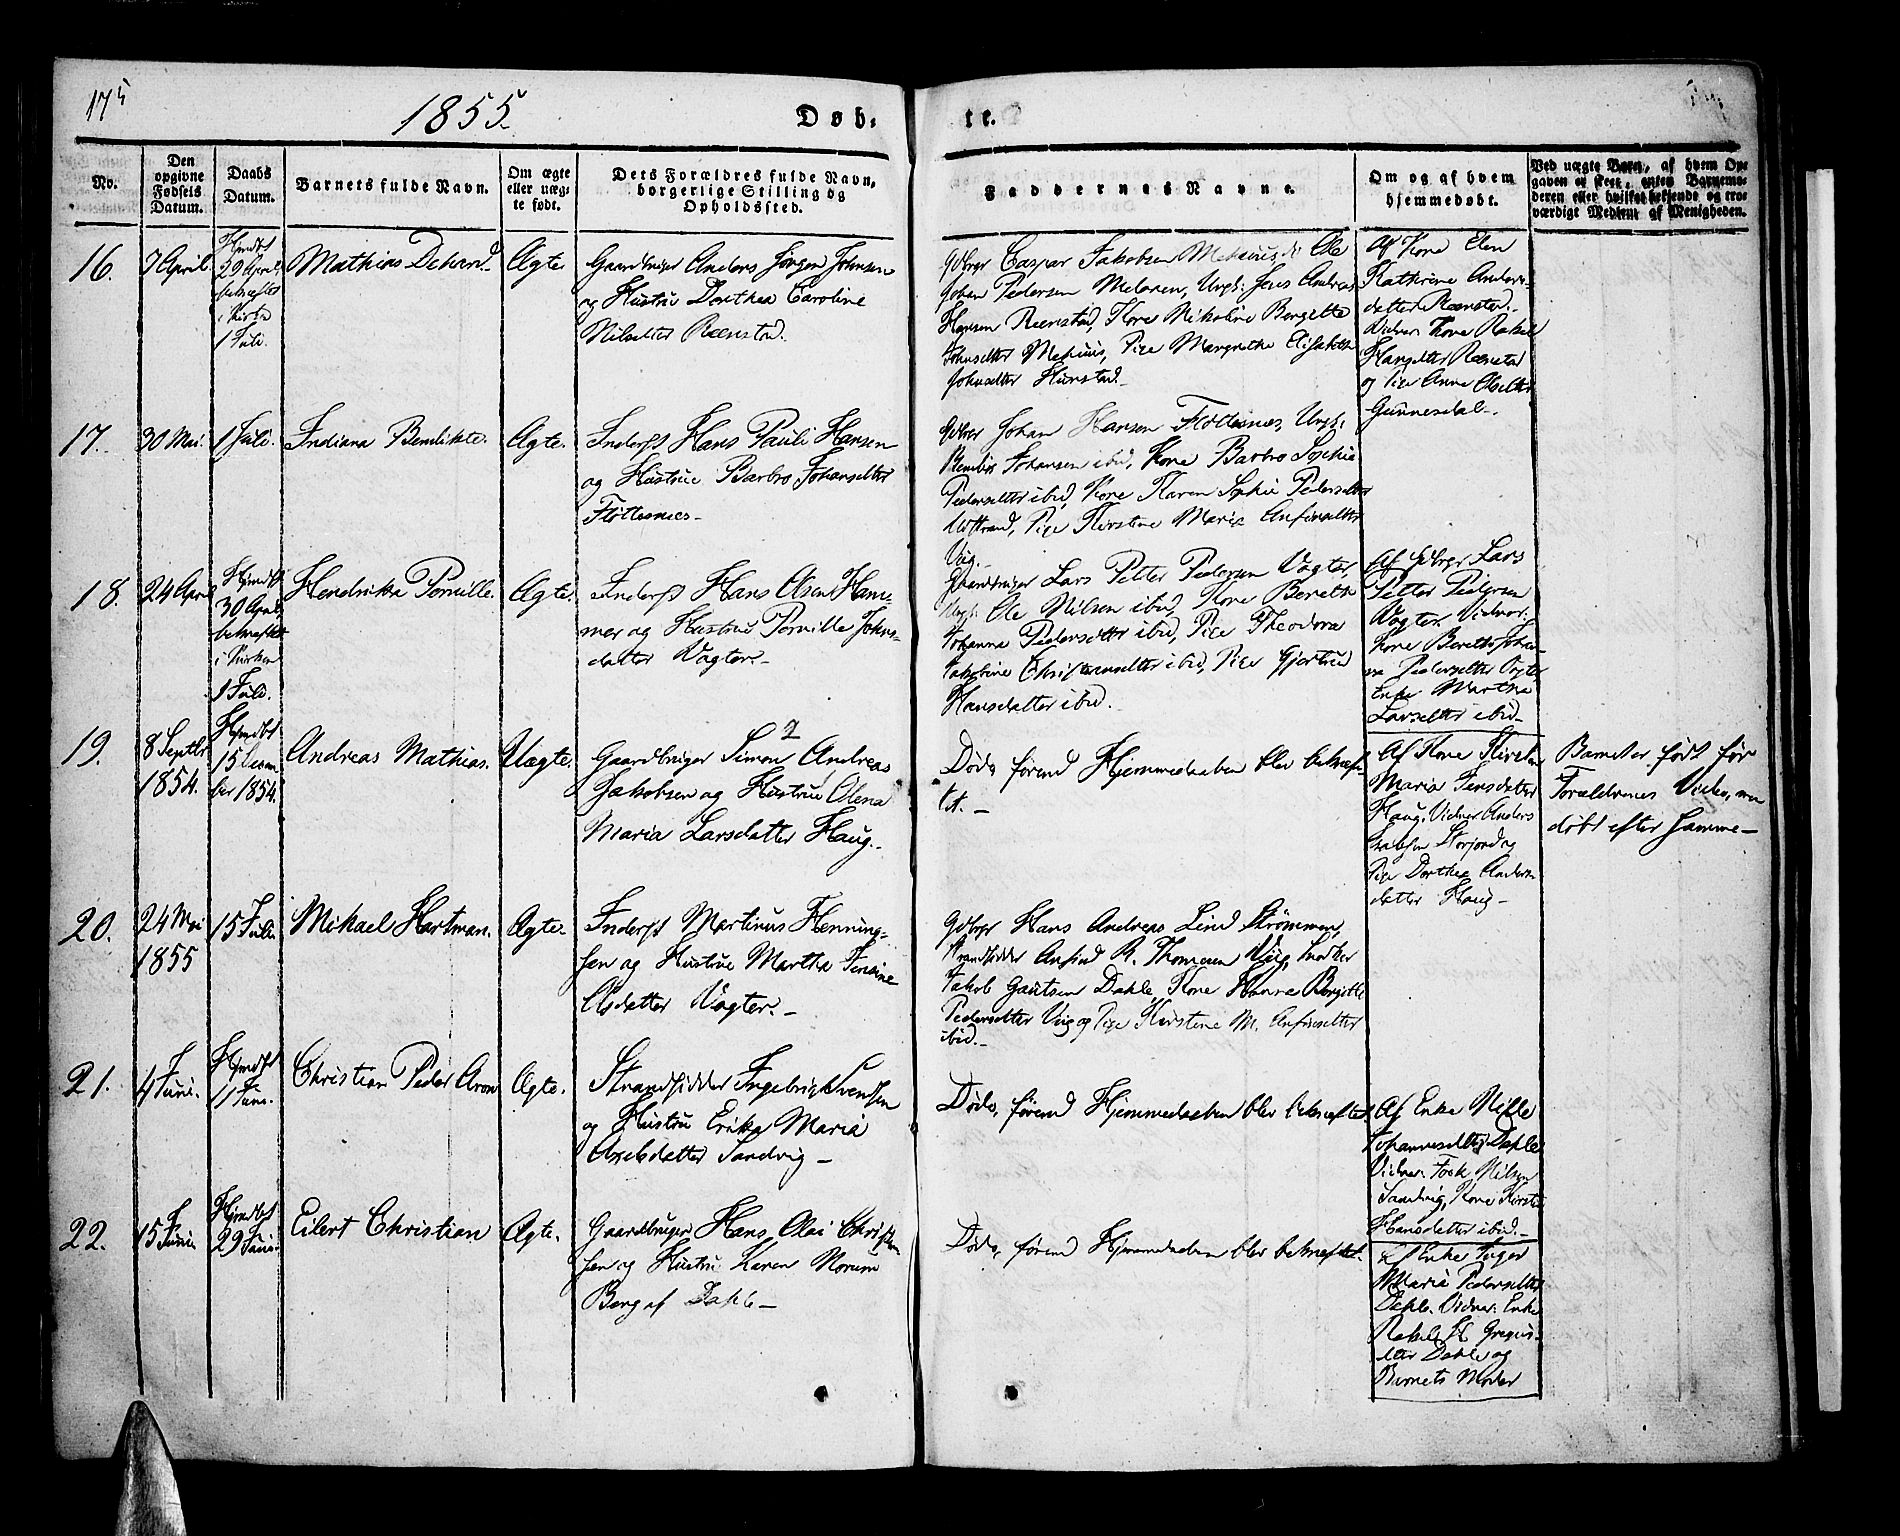 175
1855.
Døb-
te.
No.
Den opgivne Fødsels Datum.
Daabs Datum.
Barnets fulde Navn.
Om ægte eller uæg-te født.
Dets Forældres fulde Navn, borgerlige Stilling og Opholdssted.
Faddernes Navne.
Om og af hvem hjemmedøbt.
Ved uægte Børn, af hvem Op-gaven er skeet, enten Barnemo-deren eller hvilket helsende og tro-værdigt Medlem af Menigheden.
16.
7 April
Hjmdbt
29 April
bekræftet
i Kirke
1 Juli.
Mathias Dehard.
Ægte.
Gaardbruger Anders Jørgen Johnsen
og Hustru Dorthea Caroline
Nilsdtter Rænstad.
Gdbrgr Caspar Jakobsen Ole
Johan Pedersen Meloren, Ungk: Jens Andreas
Hansen Rænstad, Kone Nikoline Bergette
Johnsdtter Pige Margrethe Elisabeth
Johnsdtter Hunstad.
Af Kone Elen
Kathrine Anders-
datter Rænstad.
Vidner: Kone Rakel
Hansdtter Rænstad
og Pige Anne Olsdtter
Gunnesdal.
17.
30 Mai.
1 Juli.
Indiana Bendikte.
Ægte.
Inderst Hans Pauli Hansen
og Hustrue Barbro Johansdtter
Fløttesnes.
Gdbrgr Johan Hansen Fløttesnes, Ungk:
Johansen ibid, Kone Barbro Sophie
Pedersdtter ibid, Kone Karen Sophie Pedersdtter
Pige Kirstine Marie Anfinsdtter
Viig.
18.
24 April
Hjmdbt
30 April
bekræftet
i Kirken
1 Juli.
Hendrikka Pernille.
Ægte.
Inderst Hans Olsen Ham-
mer og Hustrue Pernille Johns-
datter Vagter.
Gaardbruger Lars Petter Pedersen Vagter,
Ungk: Ole Nilsen ibid, Kone Bereth
Johanna Pedersdtter ibid, Pige Theodora
Jakobine Christensdtter ibid, Pige Gjertrud
Hansdatter ibid.
Af Gdbrgr Lars
Petter Pedersen
Vagter. Vidner:
Kone Bereth Johan-
na Pedersdtter Vagter
Enke Martha
Larsdtter ibid.
19.
8 Septbr
1854.
Hjmdbt
15
ber 1854.
Andreas Mathias.
Uægte.
2
Gaardbruger Simon Andreas
Jakobsen og Hustrue Olena
Maria Larsdatter Haug.
Døde førend Hjemmedaaben blev bekræf-
tet.
Af Kone Kirsten
Maria Jensdatter
Haug. Vidner Anders
Storjord og
Pige Dorthea Anders-
datter Haug
Barnet er født før
Forældrenes Vielse, men
døbt efter samme
20.
24 Mai
1855
15 Juli.
Mikael Hartman.
Ægte.
Inderst Martinus Henning-
sen og Hustrue Martha Jensine
Olsdatter Vagter.
Gdbrgr Hans Andreas Lind Strømmen,
Strandsidder Anfind R. Thomesen Viig,
Jakob Gautsen Dahle, Kone Hanna Bergitte
Pedersdtter Viig og Pige Kirstine M. Anfinsdtter
ibid.
21.
4 Juni.
Hjmdbt
11 Juni.
Christian Peder Aron
Ægte.
Strandsidder Ingebrigt Svendsen
og Hustru Erikka Maria
Axelsdatter Sandvig
Døde, førend Hjemmedaaben blev bekræftet.
Af Enke Nille
Johannesdtter Dahle
Vidner: Fosk Nilsen
Sandvig, Kone Kirsten
Hansdatter ibid.
22.
15 Juni.
Hjmdbt
29 Juni
Eilert Christian
Ægte.
Gaardbruger Hans Olai Christen-
sen og Hustru Karen Norum
Berg af Dahle
Døde, førend Hjemmedaaben blev bekræftet.
Af Enke Inger
Maria Pedersdtter
Dahle. Vidner: Enke
Rakel H. Gregus-
dtter Dahle og
Barnets Moder